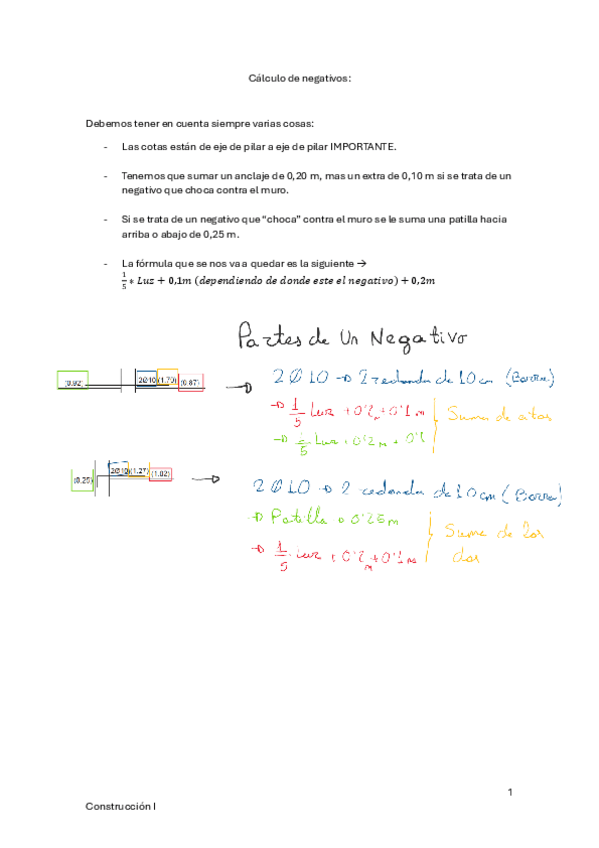 Cálculo de negativos:
Debemos tener en cuenta siempre varias cosas:
- Las cotas están de eje de pilar a eje de pilar IMPORTANTE.
- Tenemos que sumar un anclaje de 0,20 m, mas un extra de 0,10 m si se trata de un
negativo que choca contra el muro.
- Si se trata de un negativo que “choca” contra el muro se le suma una patilla hacia
arriba o abajo de 0,25 m.
- La fórmula que se nos va a quedar es la siguiente →
1/5 ∗ Luz + 0,1m (dependiendo de donde este el negativo) + 0,2m
Partes de Un Negativo
(0.92) 2Ø10 (1.79) (0.87)
2 Ø 10 → 2 redondos de 10 cm (Barra)
→ 1/5 Luz + 0'2m + 0'1 m
Suma de
→ 1/5 Luz + 0'2 m + 0'1
(0.25) 2Ø10 (1.27) (1.02)
2 Ø 10 → 2 redondos de 10 cm (Barra)
→ Patilla 0'25 m
Suma de los
dos
→ 1/5 Luz + 0'2 m + 0'1 m
1
Construcción I